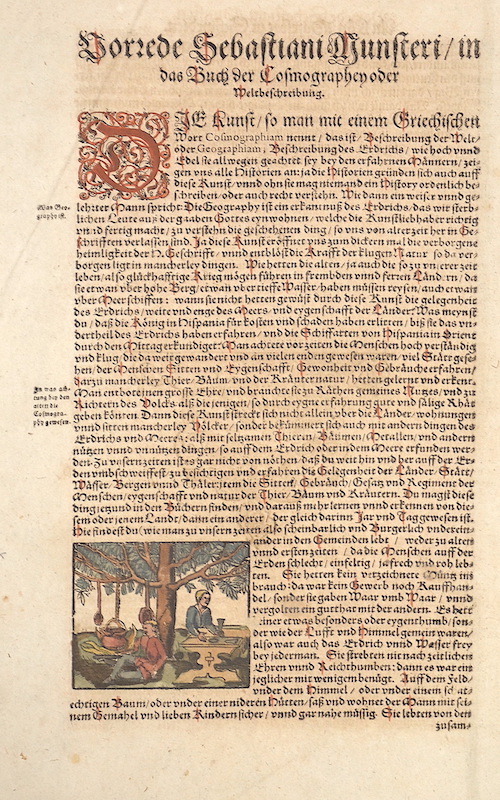 Vorrede Sebastiani Munsteri/ in
das Buch der Cosmographey oder
Weltbeschreibung.
DIE Kunst/ so man mit einem Griechischen
Wort Cosmographiam nennt/ das ist/ Beschreibung der Welt-
oder Geographiam, Beschreibung des Erdrichs/ wie hoch vnnd
Edel sie allwegen geachtet sey bey den erfahrnen Männern/ zei-
gen vns alle Historien an: ja die Historien gründen sich auch auff
diese Kunst/ vnnd ohn sie mag niemand ein History ordenlich be-
schreiben/ oder auch recht verstehn. Wie dann ein weiser vnnd ge-
Was Geo-
graphi ist.
lehrter Mann spricht: Die Geography ist erkantnuß des Erdrichs. Das wir sterb-
lichen Leute auß der gaaben Gottes eynwohnen/ welche die Kunstliebhaber richtig
vnnd fertig macht/ zu verstehn die geschehenen ding/ so vns von alter zeit her in Ge-
schrifften verlassen sind. Ja diese Kunst eröffnet vns zum dickern mal die verborgene
heimligkeit der H. Geschrifft/ vnnd entblößt die Krafft der klugen Natur/ so da ver-
borgen ligt in mancherley dingen. Wie hetten die alten/ ja auch die so zu vnserer zeit
leben/ also glückhafftige Krieg mögen führen in frembden vnnd ferren Ländern/ da
sie etwan vber hohe Berg/ etwan vber tieffe Wasser/ haben müssen reysen/ auch etwan
vber Meer schiffen: wann sie nicht hetten gewüst durch diese Kunst die gelegenheit
des Erdrichs/ weite vnd enge des Meers/ vnd eygenschafft der Länder? Was meynst
du/ daß die König in Hispania für kosten vnd schaden haben erlitten/ biß sie das vn-
dertheil des Erdrichs haben erfahren/ vnd die Schiffarten von Hispania in Orient
durch den Mittag erkundiget? Man achtete vor zeiten die Menschen hoch verständig
vnd klug/ die da weit gewandert vnd an vielen enden gewesen waren/ viel Stätt gese-
hen/ der Menschen Sitten vnd Eygenschafft/ Gewonheit vnd Gebräuche erfahren/
darzu mancherley Thier/ Bäum/ vnd der Kräuter natur/ hetten gelernt vnd erkent.
In was ach-
tung bey den
alten die
Cosmogra-
phy gewesen.
Man entbot einen grosse Ehr/ vnd brauchte sie zu Räthen gemeines Nutzes/ vnd zu
Richtern des Volcks/ als die jenigen/ so durch eygne erfahrung gute vnd sälige Rhät
geben könten. Dann diese Kunst streckt sich nicht allein vber die Länder/ wohnungen
vnnd sitten mancherley Völcker/ sonder bekümmert sich auch mit andern dingen des
Erdrichs vnd Meers: alß mit seltzamen Thieren/ Bäumen/ Metallen/ vnd andern
nützen vnnd vnnützen dingen/ so auff dem Erdrich oder in dem Meere erfunden wer-
den. Zu vnsern zeiten ist es gar nicht von nöthen/ daß du weit hin vnd her auff der Er-
den vmbschweiffest/ zu besichtigen vnd erfahren die Gelegenheit der Länder/ Stätt/
Wässer/ Bergen vnnd Thälern/ item die Sitten/ Gebräuch/ Gesatz vnd Regiment der
Menschen/ eygenschafft vnd natur der Thier/ Bäum vnd Kräutern. Du magst diese
ding jetzund in den Büchern finden/ vnd darauß mehr lernen vnd erkennen von die-
sem oder jenem Land/ dann ein anderer/ der gleich darinn Jar vnd Tag gewesen ist.
Die findest du/ wie man zu vnsern zeiten also scheinbarlich vnd Burgerlich vnderein-
ander in den Gemeinden lebt/ weder zu alten
vnnd ersten zeiten/ da die Menschen auff der
Erden schlecht/ einfeltig/ jafrech vnd roh leb-
ten. Sie hetten kein verzeichnete Müntz im
brauch: da war kein Gewerb noch Kauffhan-
del/ sonder sie gaben Waar vmb Waar/ vnnd
vergolten ein gutthat mit der andern. Es hett
keiner etwas besonders oder eygenthumb/ son-
der wie der Lufft vnd Himmel gemein waren/
also war auch das Erdrich vnnd Wasser frey
bey jederman. Sie strebten nit nach zeitlichen
Ehren vnnd Reichthumben: dann es war ein
jeglicher mit wenigem benügt. Auff dem Feld/
vnder dem Himmel/ oder vnder einem schat-
echtigen Baum/ oder vnder einer nideren Hütten/ saß vnd wohnet der Mann mit sei-
nem Gemahel vnd lieben Kindern sicher/ vnnd gar nahe müssig. Sie lebten von den
zusam-